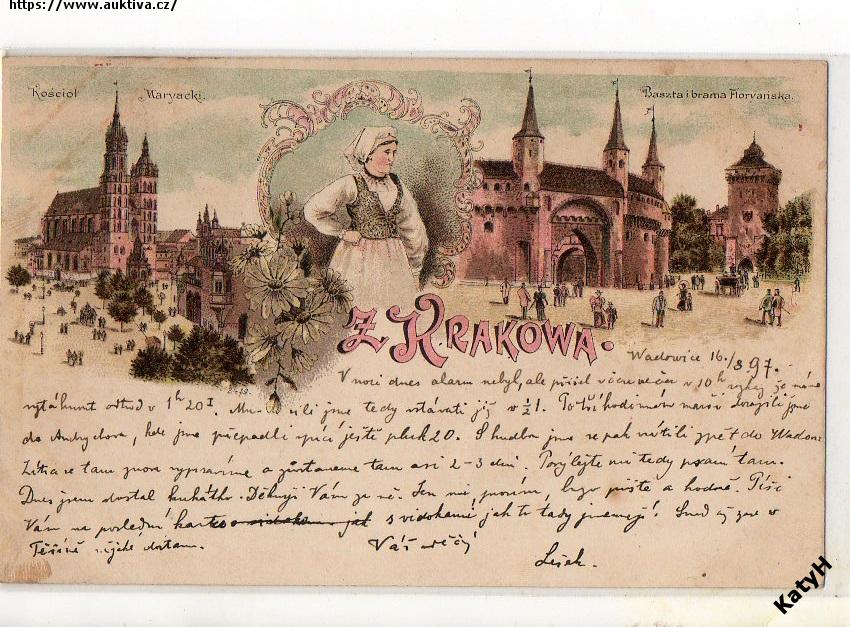 https://www.auktiva.cz/
Kościoł Maryacki.
Baszta i brama Floryańska.
Z KRAKOWA.
Wadowice 16./8 97.
V noci dnes alarm nebyl, ale přišel včera večer v 10h že máme
odchod v 1h 20 I. Museli jsme tedy vstávati již v ½1. Po hodinovém marši dorazili jsme
do Andrychova, kde jsme přepadli spící ještě pluk 20. S hudbou jsme se pak vrátili zpět do Wadowic
Zítra se tam znova vypravíme a zůstaneme tam asi 2-3 dni. Posýlejte mi tedy psaní tam.
Dnes jsem dostal kukátko. Děkuji Vám za ně. Jen mi, prosím, brzo pište a hodně. Píši
Vám na poslední kartce s vidokami jak to tady jmenují! Snad až zase v
Těšíně nějaké dostanu.
Váš vděčný
Lešek.
KatyH